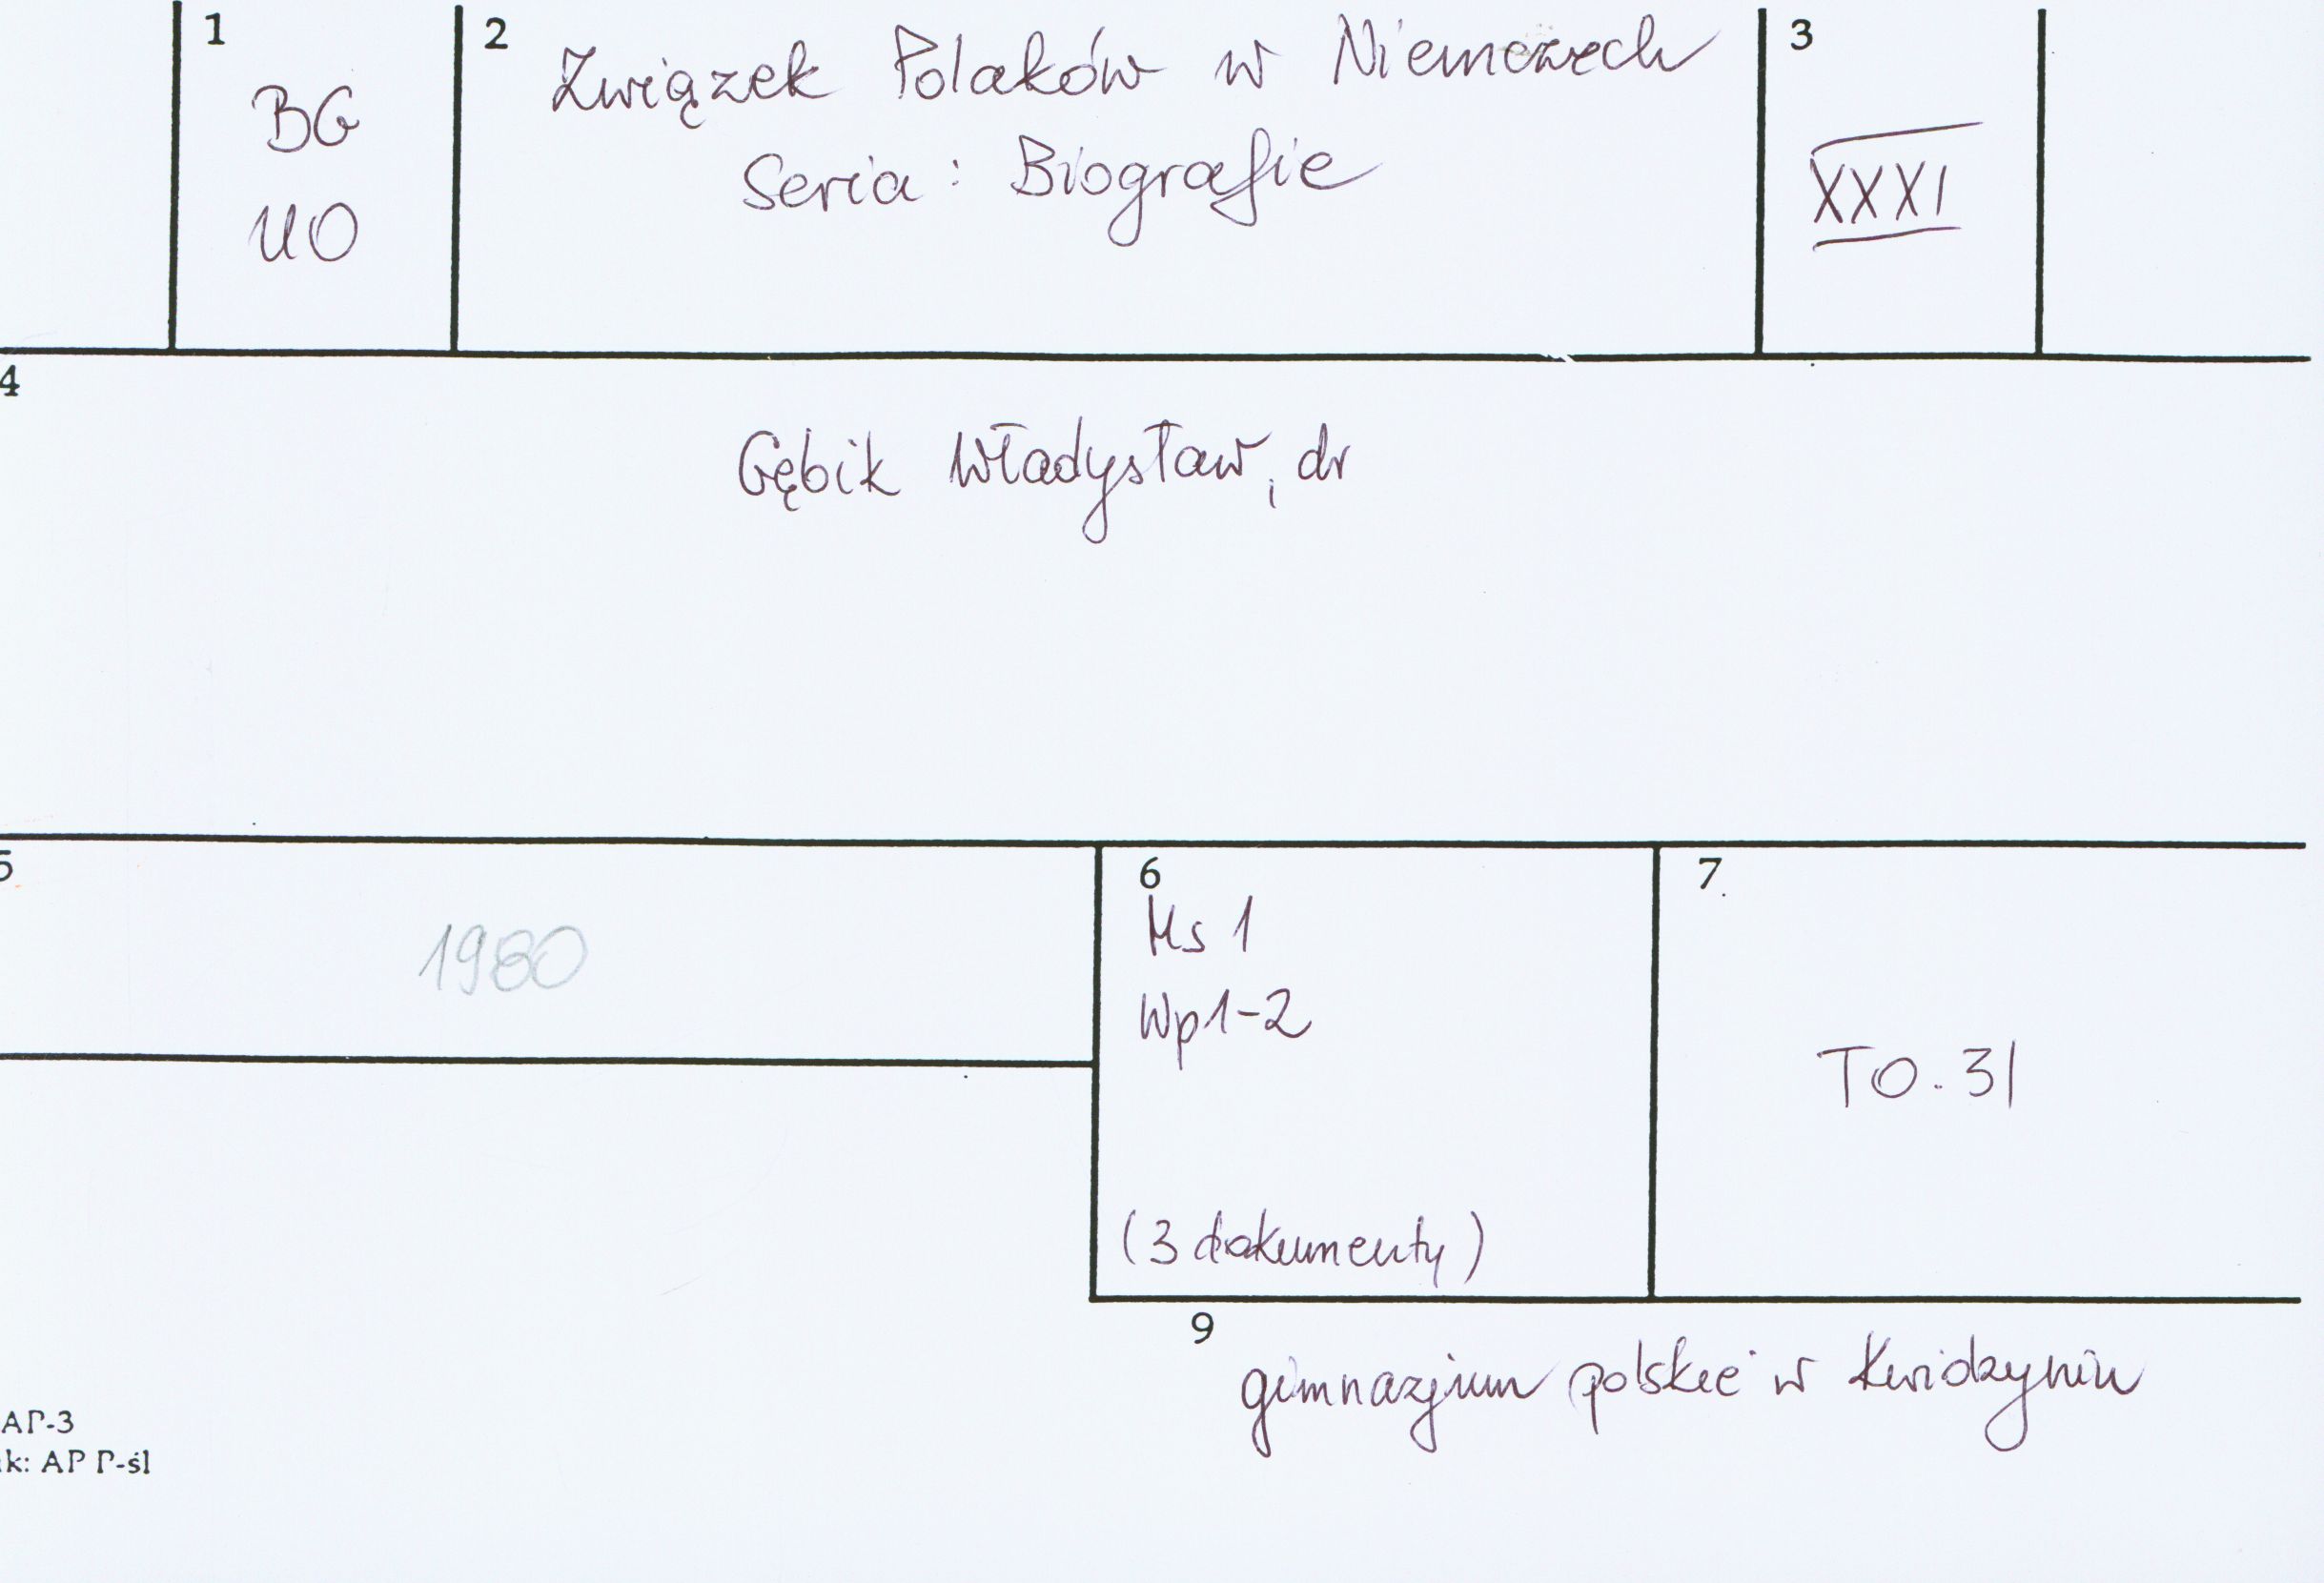 1
BG
UO
2
Związek Polaków w Niemczech
Seria: Biografie
3
XXXI
4
Gębik Władysław, dr
5
1980
6
Ms 1
Wp 1-2
(3 dokumenty)
7
TO. 31
9
gimnazjum polskie w Kwidzyniu
AP-3
k: AP P-śl